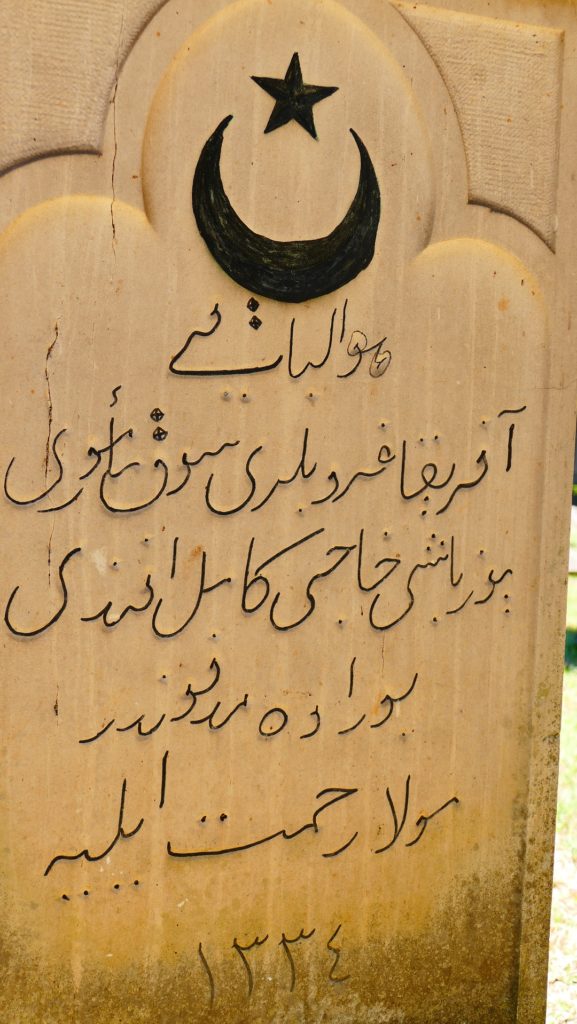 آفریقا غروبلری سوق مأموری
یوزباشی حاجی کامل افندی
بوراده مدفوندر
مولا رحمت ایلیه
١٣٣٤